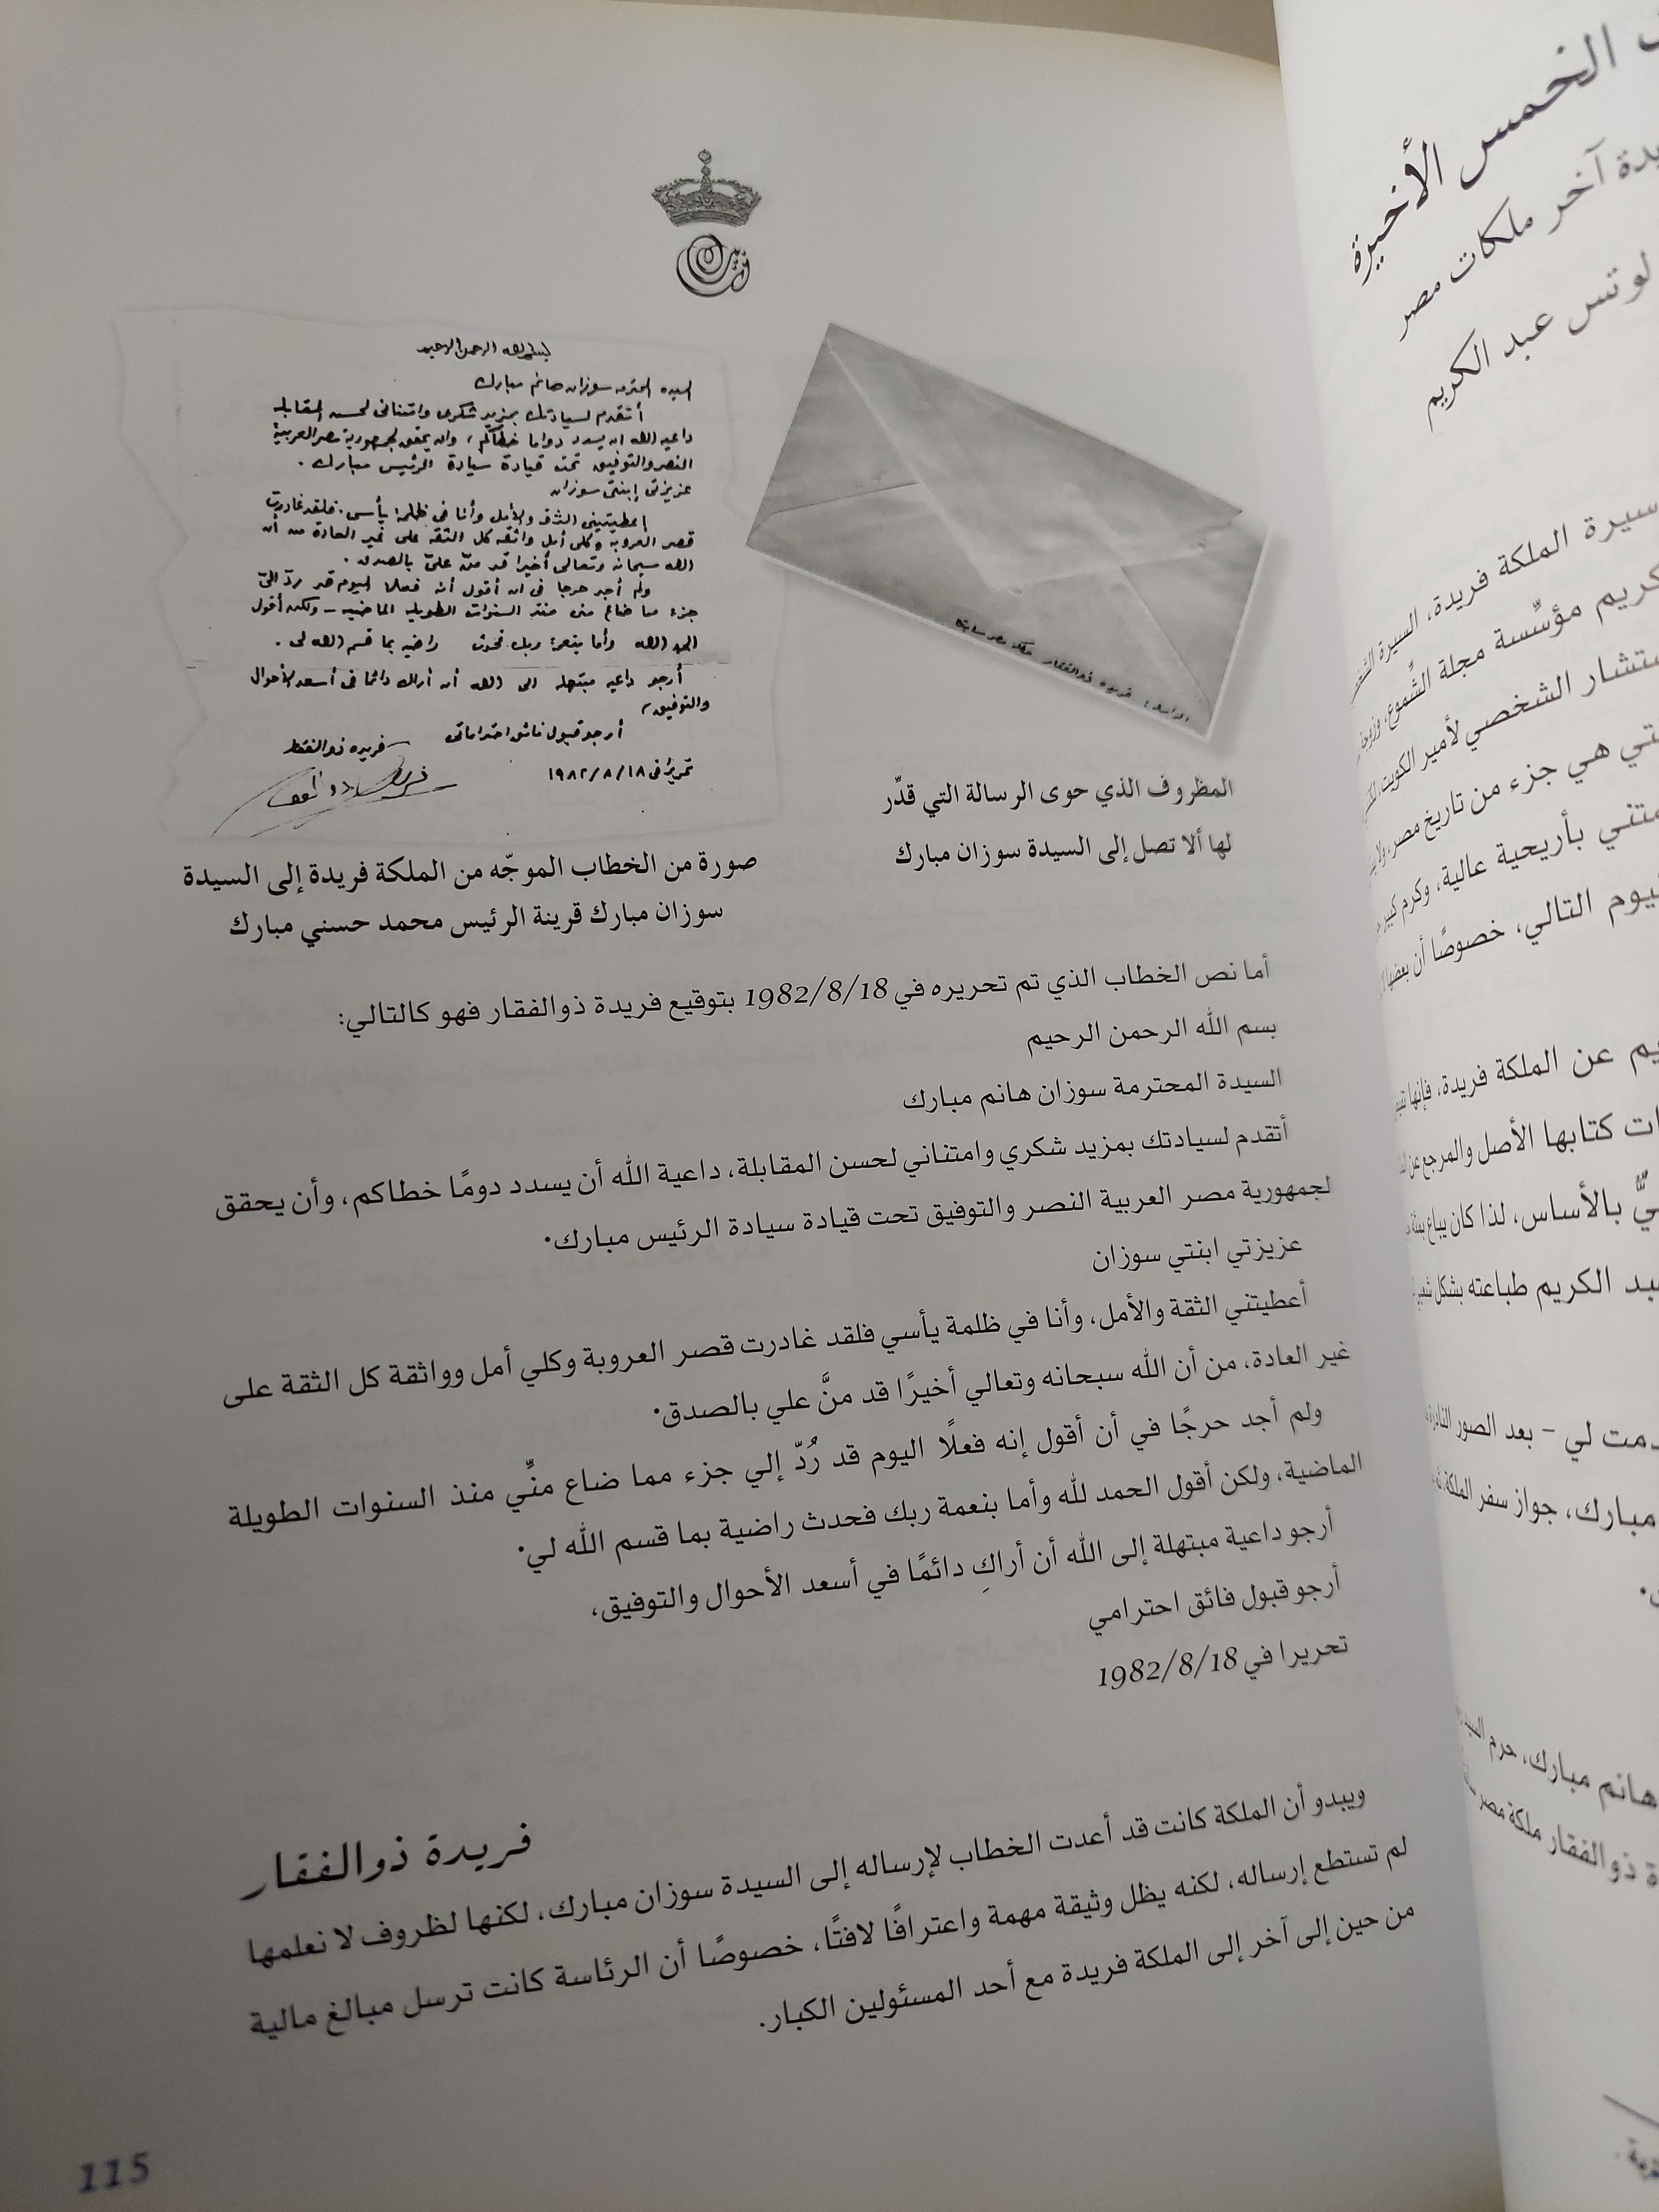 بسم الله الرحمن الرحيم
السيده المحترمه سوزان هانم مبارك
أتقدم لسيادتك بمزيد شكرى وامتنانى لحسن المقابله
داعيه الله ان يسدد دواما خطاكم، وان يحقق لجمهورية مصر العربية
النصر والتوفيق تحت قيادة سيادة الرئيس مبارك.
عزيزتى إبنتى سوزان
إعطيتينى الثقه والأمل وأنا فى ظلمة يأسى. فلقد غادرت
قصر العروبه وكلى أمل واثقه كل الثقه على غير العادة من أن
الله سبحانه وتعالى أخيرا قد منّ علىّ بالصدق.
ولم أجد حرجا فى ان أقول أنه فعلا اليوم قد ردّ الىّ
جزء مما ضاع منى منذ السنوات الطويله الماضيه - ولكن أقول
الحمد الله وأما بنعمة ربك فحدث راضيه بما قسم الله لى.
أرجو داعيه مبتهله الى الله أن أراك دائما فى أسعد الأحوال
والتوفيق
أرجو قبول فائق احتراماتى
فريده ذو الفقار
تحريرا فى ١٩٨٢/٨/١٨
الراسل: فريده ذو الفقار ملكة مصر سابقا
المظروف الذي حوى الرسالة التي قدّر
لها ألا تصل إلى السيدة سوزان مبارك
صورة من الخطاب الموجّه من الملكة فريدة إلى السيدة
سوزان مبارك قرينة الرئيس محمد حسني مبارك
أما نص الخطاب الذي تم تحريره في 1982/8/18 بتوقيع فريدة ذوالفقار فهو كالتالي:
بسم الله الرحمن الرحيم
السيدة المحترمة سوزان هانم مبارك
أتقدم لسيادتك بمزيد شكري وامتناني لحسن المقابلة، داعية الله أن يسدد دومًا خطاكم، وأن يحقق
لجمهورية مصر العربية النصر والتوفيق تحت قيادة سيادة الرئيس مبارك.
عزيزتي ابنتي سوزان
أعطيتني الثقة والأمل، وأنا في ظلمة يأسي فلقد غادرت قصر العروبة وكلي أمل وواثقة كل الثقة على
غير العادة، من أن الله سبحانه وتعالي أخيرًا قد منَّ علي بالصدق.
ولم أجد حرجًا في أن أقول إنه فعلًا اليوم قد رُدّ إلي جزء مما ضاع منِّي منذ السنوات الطويلة
الماضية، ولكن أقول الحمد لله وأما بنعمة ربك فحدث راضية بما قسم الله لي.
أرجو داعية مبتهلة إلى الله أن أراكِ دائمًا في أسعد الأحوال والتوفيق،
أرجو قبول فائق احترامي
تحريرا في 1982/8/18
فريدة ذوالفقار
ويبدو أن الملكة كانت قد أعدت الخطاب لإرساله إلى السيدة سوزان مبارك، لكنها لظروف لا نعلمها
لم تستطع إرساله، لكنه يظل وثيقة مهمة واعترافًا لافتًا، خصوصًا أن الرئاسة كانت ترسل مبالغ مالية
من حين إلى آخر إلى الملكة فريدة مع أحد المسئولين الكبار.
115
الخمس الأخيرة
آخر ملكات مصر
لوتس عبد الكريم
سيرة الملكة فريدة، السيرة
مؤسِّسة مجلة الشموع، وزوجة
الشخصي لأمير الكويت،
هي جزء من تاريخ مصر،
بأريحية عالية، وكرم كبير
التالي، خصوصًا أن بعضها
عن الملكة فريدة، فإنها
كتابها الأصل والمرجع عن
بالأساس، لذا كان يباع
الكريم طباعته بشكل
لي - بعد الصور
مبارك، جواز سفر الملكة
هانم مبارك، حرم
ذوالفقار ملكة مصر